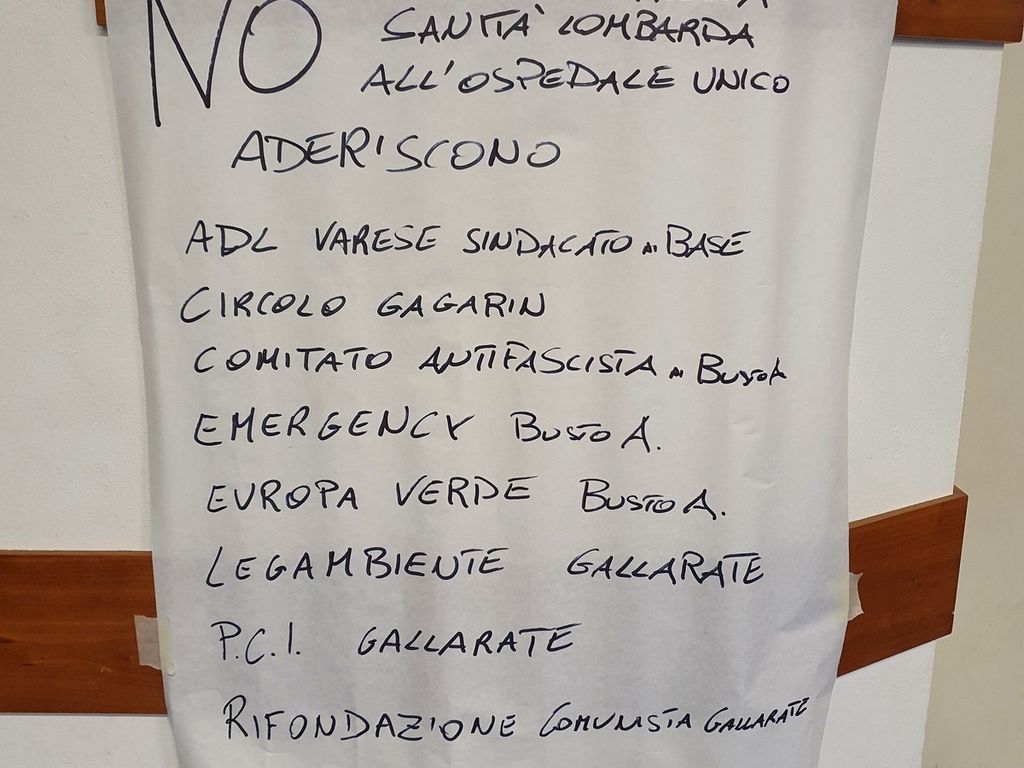 NO
SANITA' LOMBARDA
ALL'OSPEDALE UNICO
ADERISCONO
ADL VARESE SINDACATO DI BASE
CIRCOLO GAGARIN
COMITATO ANTIFASCISTA DI BUSTO A
EMERGENCY BUSTO A.
EUROPA VERDE BUSTO A.
LEGAMBIENTE GALLARATE
P.C.I. GALLARATE
RIFONDAZIONE COMUNISTA GALLARATE